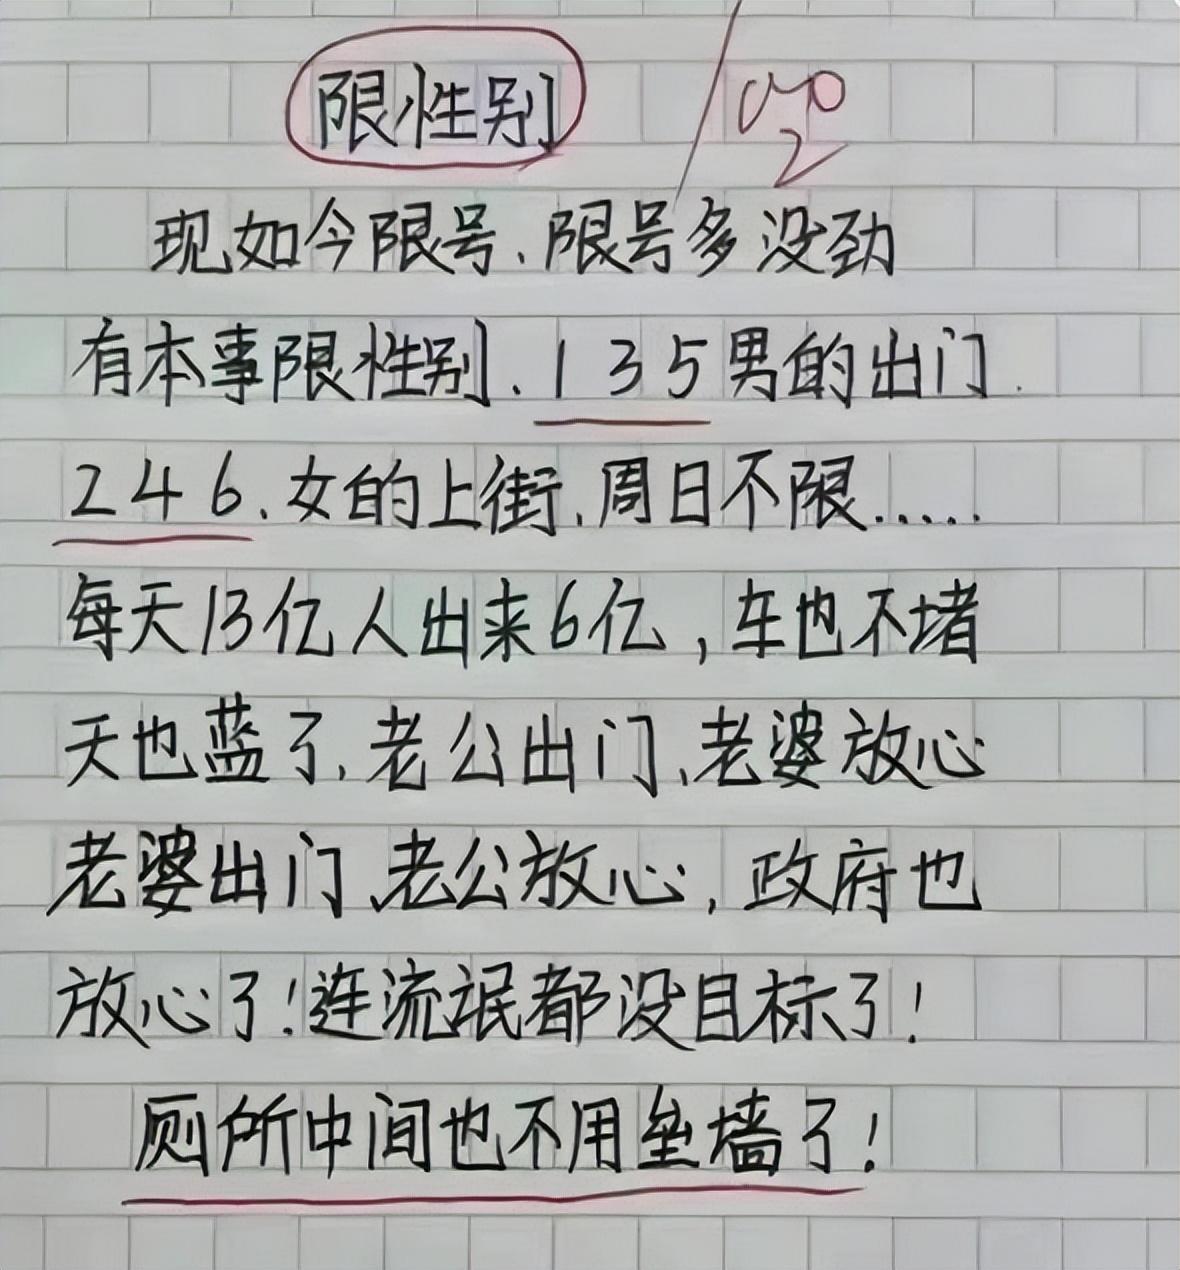 限性别
现如今限号、限号多没劲
有本事限性别、135男的出门.
246、女的上街、周日不限.....
每天13亿人出来6亿，车也不堵
天也蓝了、老公出门、老婆放心
老婆出门、老公放心，政府也
放心了！连流氓都没目标了！
厕所中间也不用垒墙了！